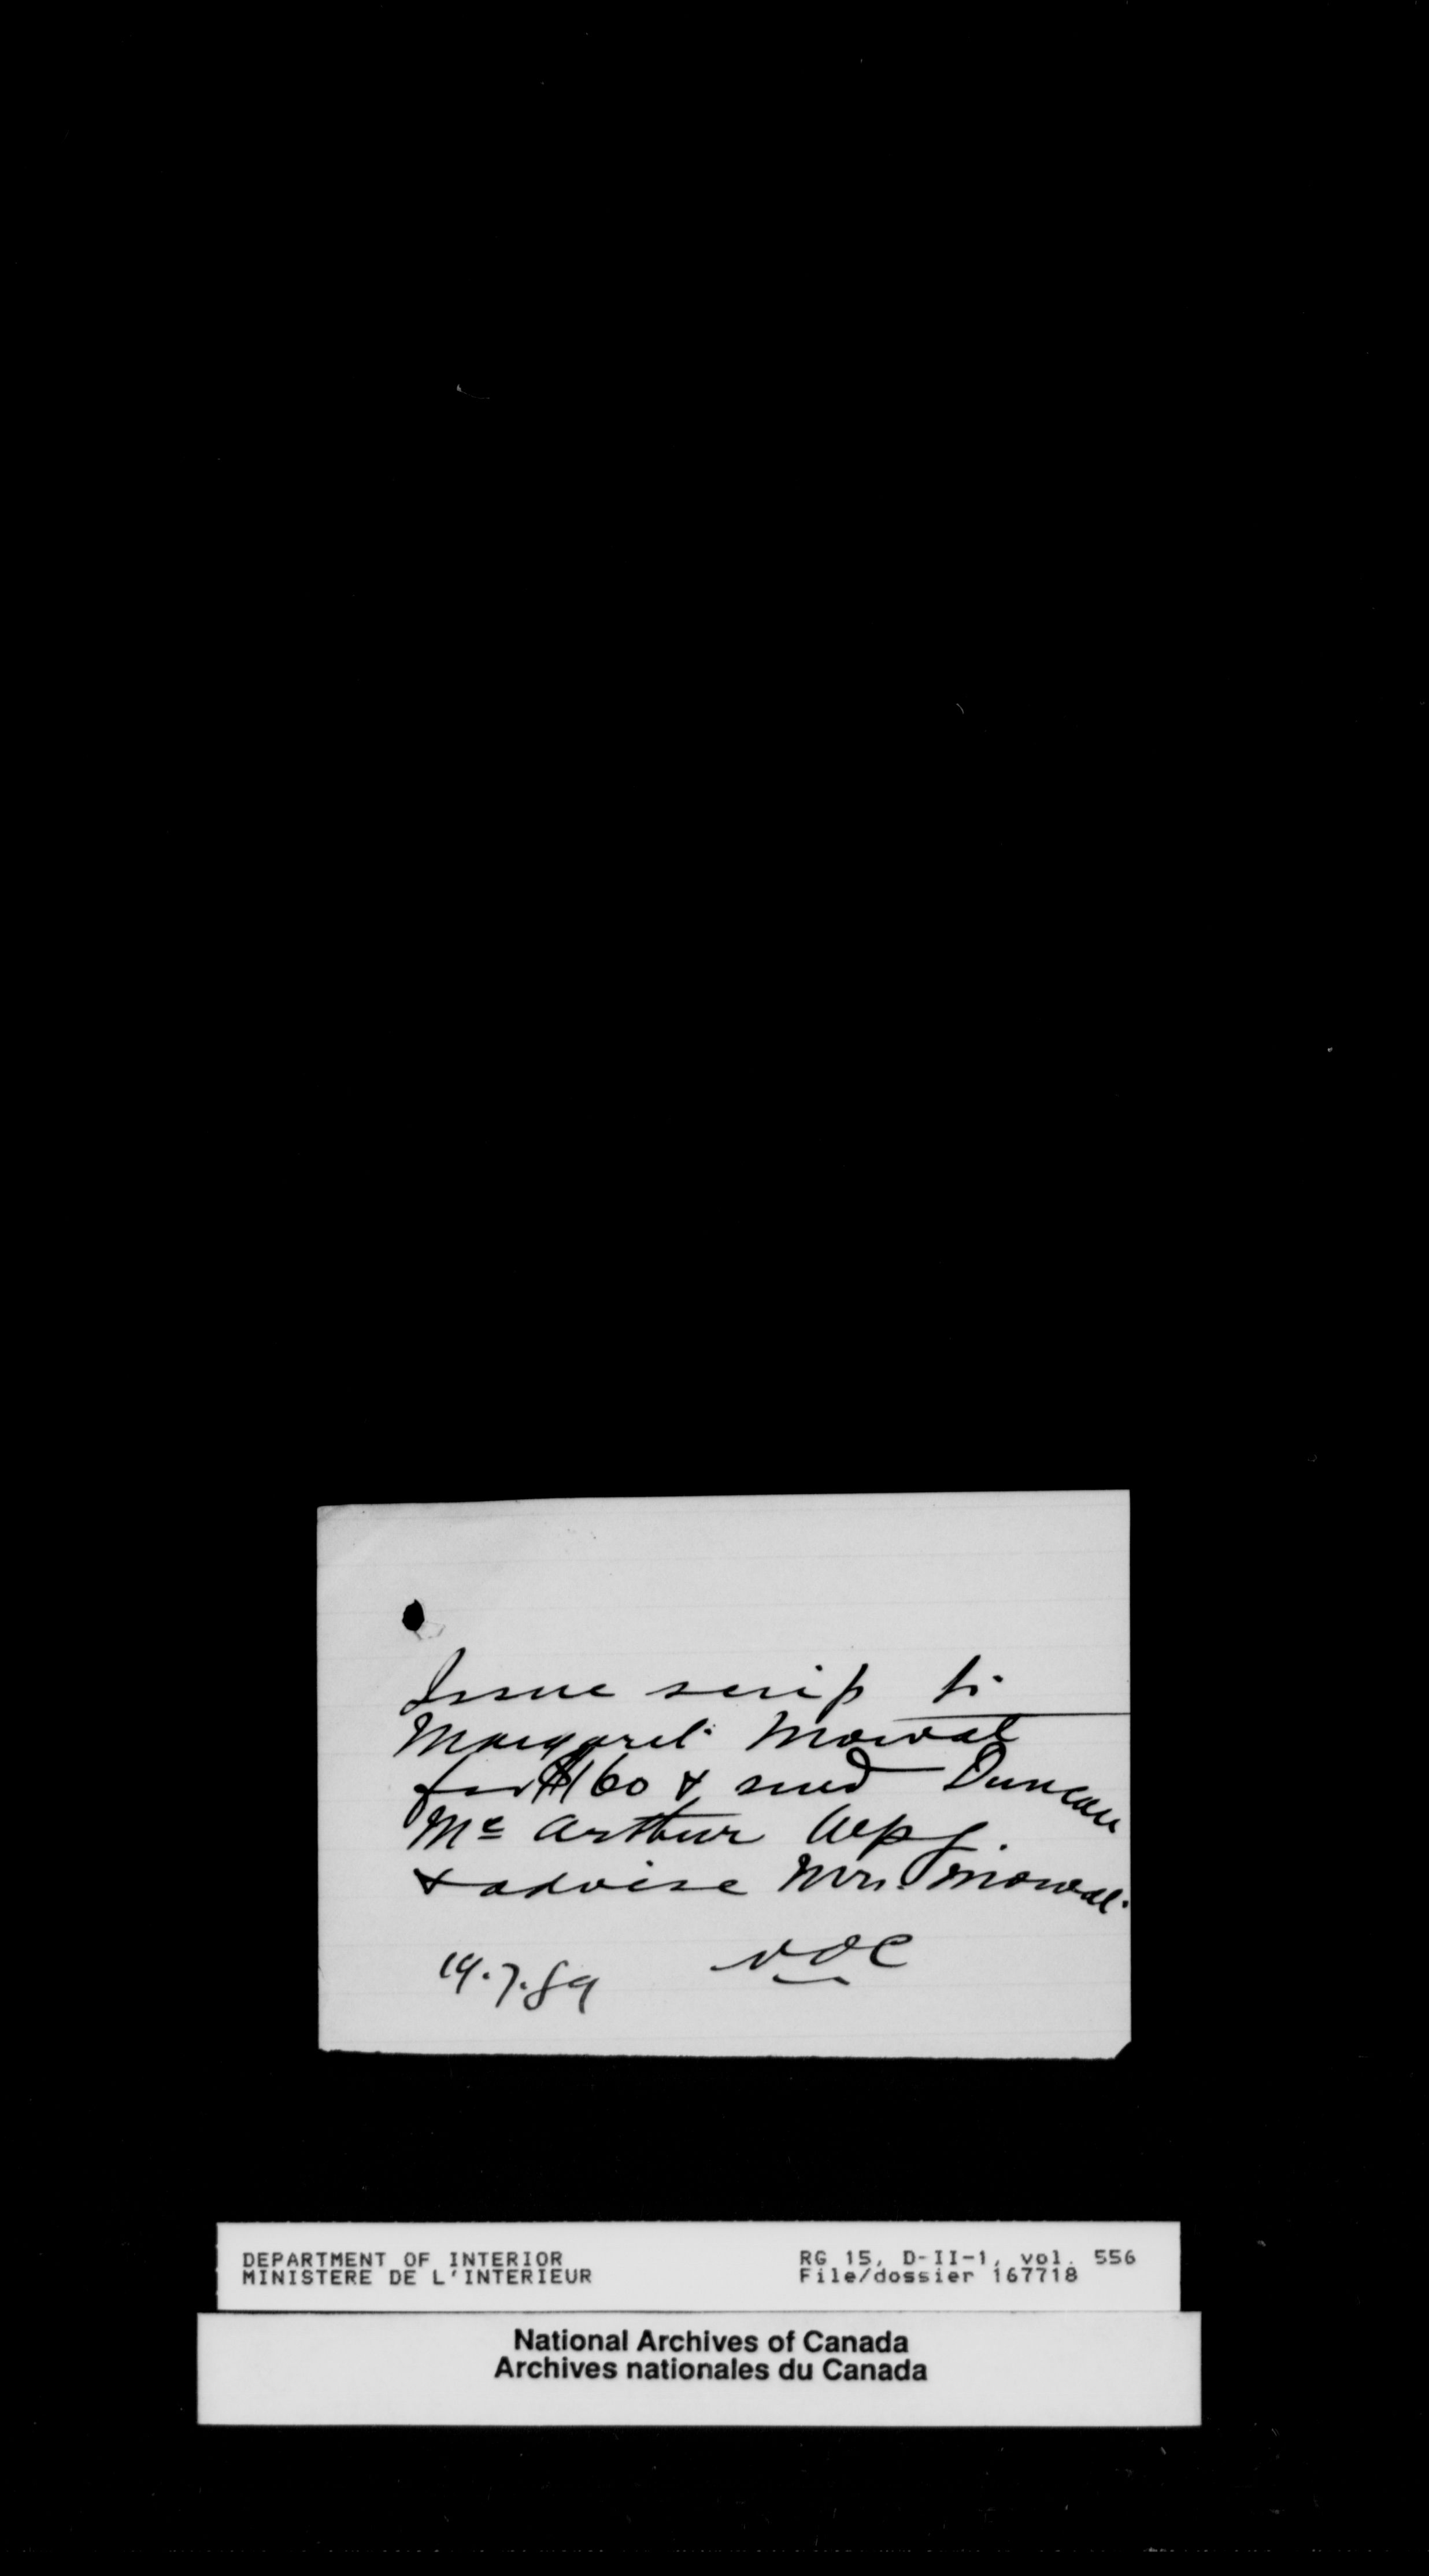 Issue scrip to
Margaret Mowat
for $160 & send Duncan
Mc Arthur Wpg.
& advise Mrs. Mowat.
19.7.89
DEPARTMENT OF INTERIOR
MINISTERE DE L'INTERIEUR
RG 15, D-II-1, vol. 556
File/dossier 167718
National Archives of Canada
Archives nationales du Canada